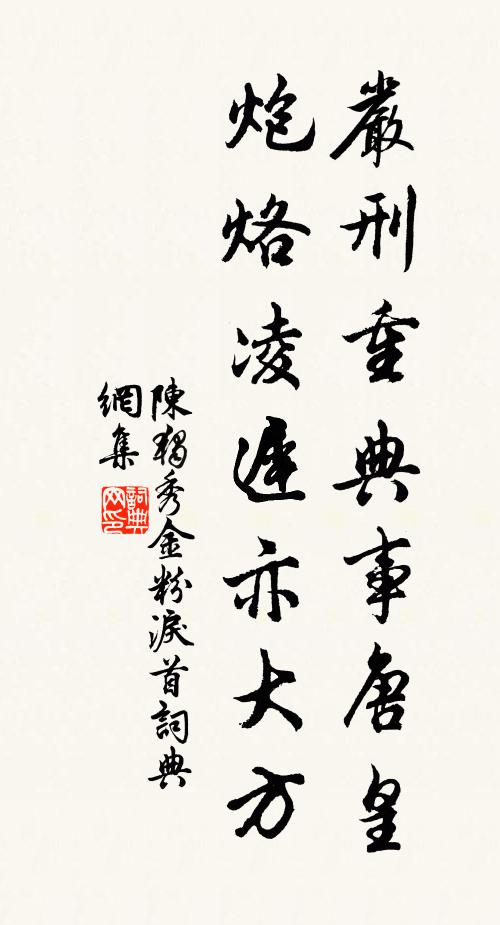 嚴刑重典事唐皇
炮烙凌遲亦大方
陳獨秀金粉淚首詞典
網集
詞典
网印